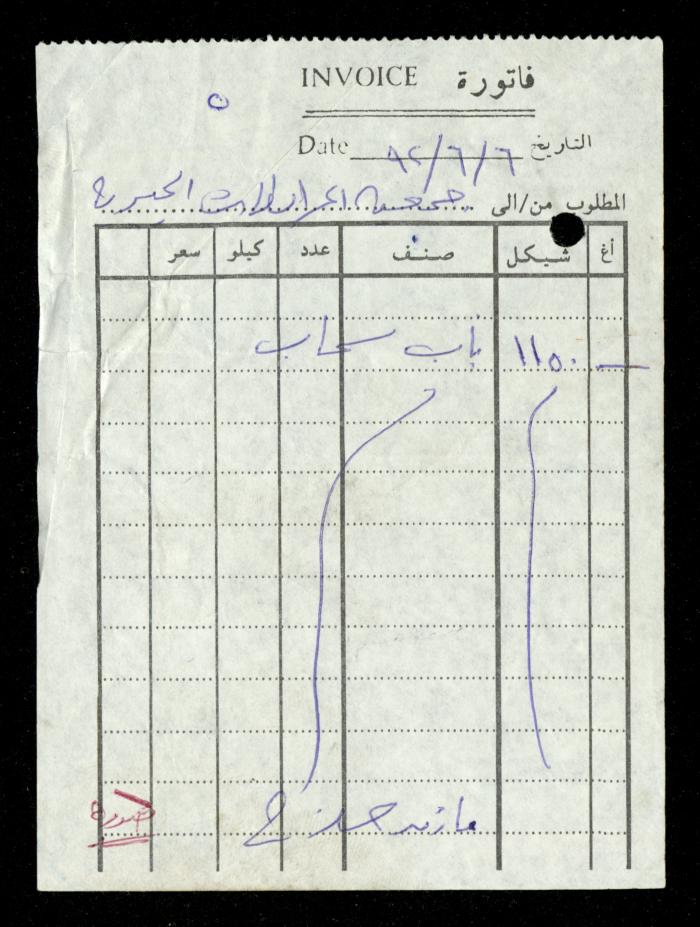 INVOICE فاتورة
٥
Date ٩٢/٦/٦ التاريخ
المطلوب من/الى جمعية الخيرية
أغ شيكل صنف عدد كيلو سعر
— ١١٥٠ باب سحاب
مازن
صورة